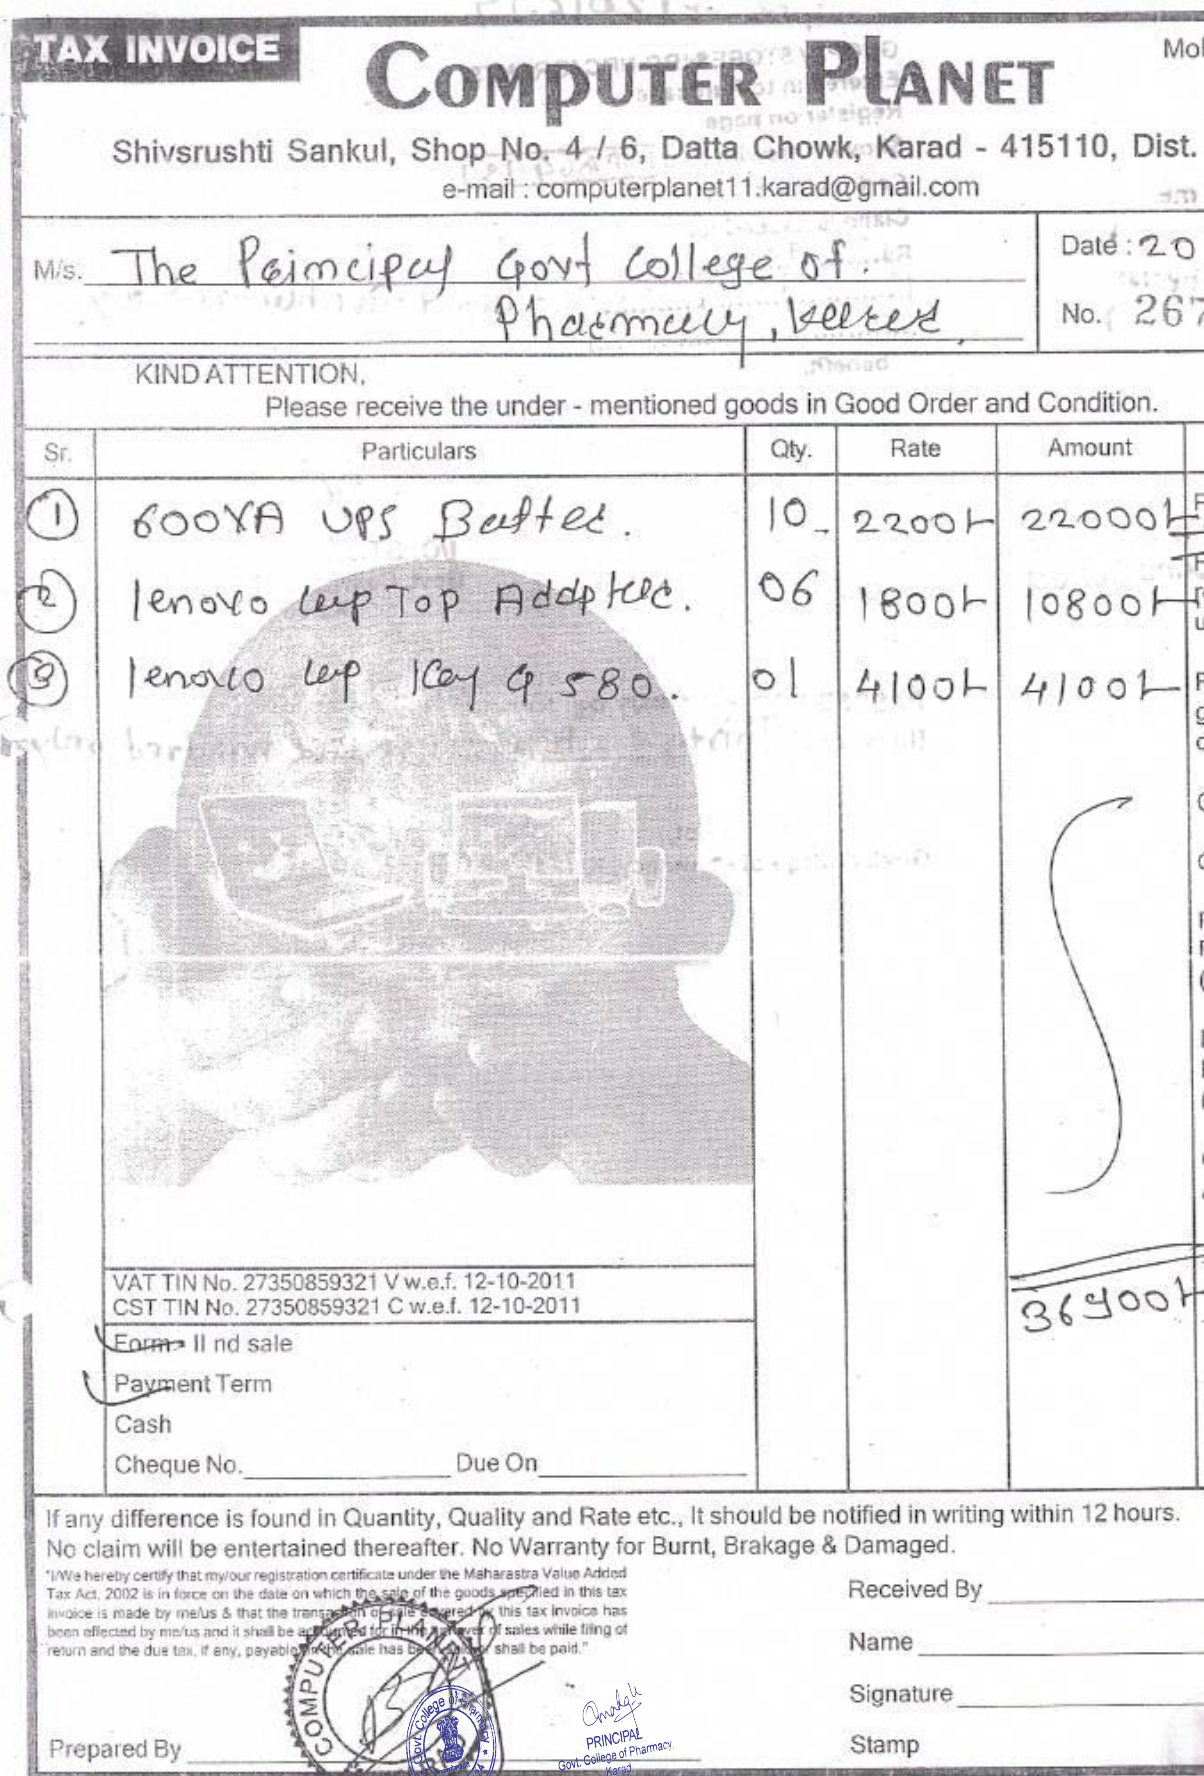 TAX INVOICE
COMPUTER PLANET
Shivsrushti Sankul, Shop No. 4 / 6, Datta Chowk, Karad - 415110, Dist.
e-mail : computerplanet11.karad@gmail.com
M/s. The Principal Govt College of.
Pharmacy, Karad.
Date : 20
No. 267
KIND ATTENTION,
Please receive the under - mentioned goods in Good Order and Condition.
Sr. Particulars Qty. Rate Amount
1 600VA UPS Batter. 10 2200/- 22000/-
2 lenovo Lap Top Adapter. 06 1800/- 10800/-
3 lenovo Lap Key G 580. 01 4100/- 4100/-
36900/-
VAT TIN No. 27350859321 V w.e.f. 12-10-2011
CST TIN No. 27350859321 C w.e.f. 12-10-2011
Form - II nd sale
Payment Term
Cash
Cheque No. Due On
If any difference is found in Quantity, Quality and Rate etc., It should be notified in writing within 12 hours.
No claim will be entertained thereafter. No Warranty for Burnt, Brakage & Damaged.
"I/We hereby certify that my/our registration certificate under the Maharastra Value Added
Tax Act, 2002 is in force on the date on which the sale of the goods specified in this tax
invoice is made by me/us & that the transaction of sale covered by this tax invoice has
been effected by me/us and it shall be accounted for in the turnover of sales while filing of
return and the due tax, if any, payable on the sale has been shall be paid."
Received By
Name
Signature
Stamp
Prepared By
COMPUTER PLANET
Govt. College of Pharmacy
PRINCIPAL
Govt. College of Pharmacy
Karad